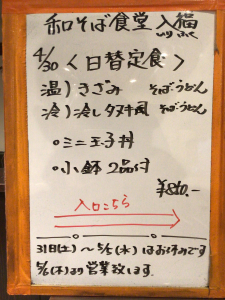 和そば食堂 入福
4/30 〈日替定食〉
温)きざみ そばうどん
冷)冷しタヌキ風 そばうどん
○ミニ玉子丼
○小鉢2品付
¥840.-
入口こちら
31日(土)〜5/5(水)はお休みです
5/6(木)より営業致します